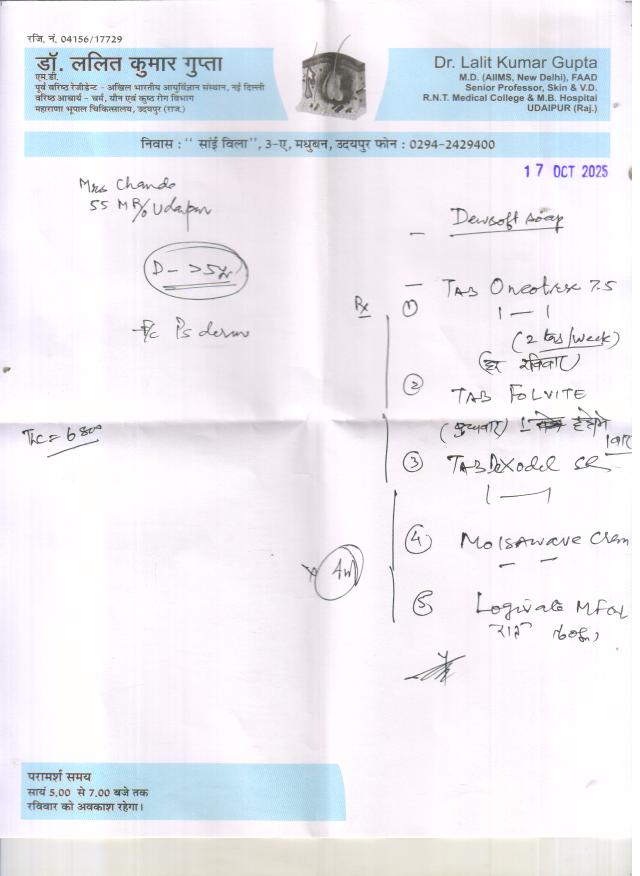 रजि. नं. 04156/17729
डॉ. ललित कुमार गुप्ता
एम.डी.
पूर्व वरिष्ठ रेजीडेन्ट - अखिल भारतीय आयुर्विज्ञान संस्थान, नई दिल्ली
वरिष्ठ आचार्य - चर्म, यौन एवं कुष्ठ रोग विभाग
महाराणा भूपाल चिकित्सालय, उदयपुर (राज.)
Dr. Lalit Kumar Gupta
M.D. (AIIMS, New Delhi), FAAD
Senior Professor, Skin & V.D.
R.N.T. Medical College & M.B. Hospital
UDAIPUR (Raj.)
निवास : '' सांई विला'', ३-ए, मधुबन, उदयपुर फोन : 0294-2429400
17 OCT 2025
Mrs
55 R/o Udaipur
D - >5yr
Ps derm
TLC = 6800
Dewsoft soap
Rx
① TAB 7.5
1 — 1
(2 tab/week)
रविवार
② TAB FOLVITE
③ TAB SR
1 — 1
④
4w
⑤
परामर्श समय
सायं 5.00 से 7.00 बजे तक
रविवार को अवकाश रहेगा।